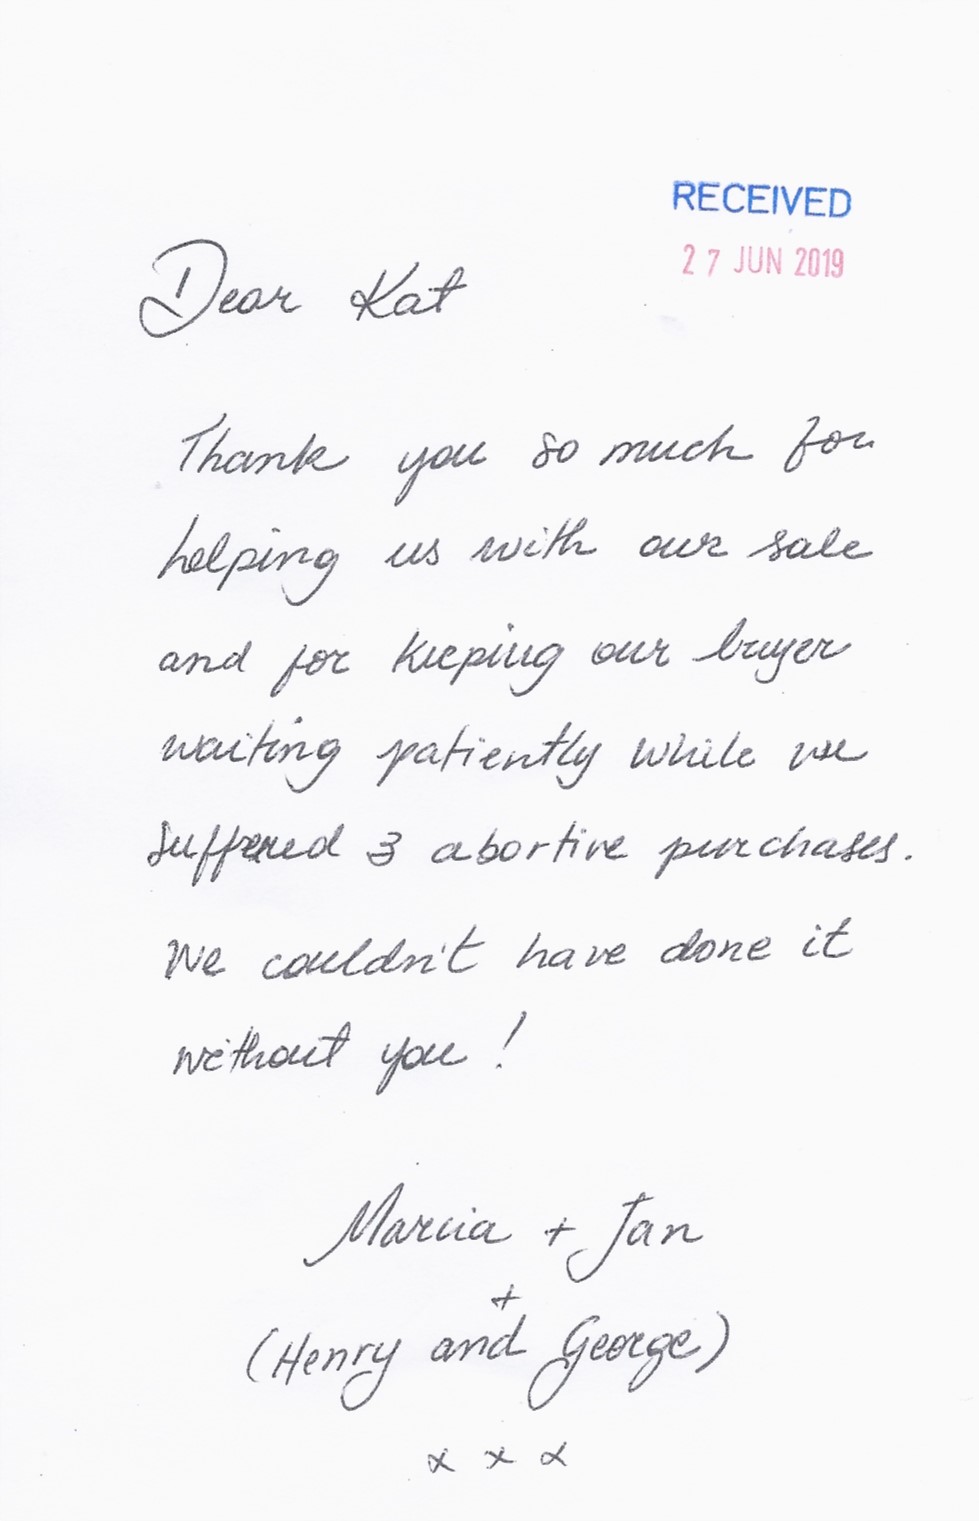 RECEIVED
27 JUN 2019
Dear Kat
Thank you so much for
helping us with our sale
and for keeping our buyer
waiting patiently while we
suffered 3 abortive purchases.
We couldn't have done it
without you!
Marcia + Jan
+
(Henry and George)
x x x